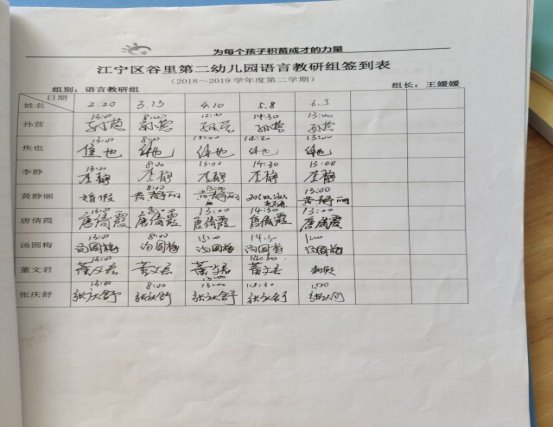 为每个孩子积蓄成才的力量
江宁区谷里第二幼儿园语言教研组签到表
(2018~2019学年度第二学期)
组别：语言教研组 组长：王媛媛
日期 姓名 2.20 3.13 4.10 5.8 6.3
13:00 8:00 14:30 13:00
孙营 孙营 孙营 孙营 孙营 孙营
13:00 8:00 13:00
焦也 焦也 焦也 焦也 焦也 焦也
13:00 8:00 13:00 14:30 13:00
李静 李静 李静 李静 李静 李静
8:00 13:00 13:00
黄静丽 婚假 黄静丽 黄静丽 黄静丽
13:00 13:00 14:30 13:00
唐倩霞 唐倩霞 唐倩霞 唐倩霞 唐倩霞 唐倩霞
13:00 8:00 13:00
汤圆梅 汤圆梅 汤圆梅 汤圆梅 汤圆梅 汤圆梅
13:00
董文君 董文君 董文君 董文君 董文君
13:00 8:00 13:00
张庆舒 张庆舒 张庆舒 张庆舒 张庆舒 张庆舒